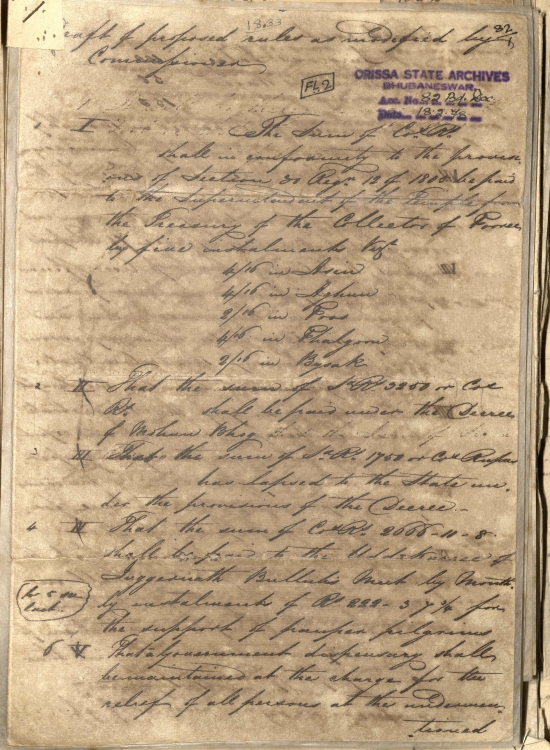 1833
82
Draft of proposed rules as modified by
Commissioner
FL2
ORISSA STATE ARCHIVES
BHUBANESWAR,
Acc. No. 82
Date 18.2.
I The Sum of Cos Rs
shall in conformity to the provisi-
ons of Section 30 Regn 12 of be paid
to the Superintendent of the Temple from
the Treasury of the Collector of Pooree
by five instalments Vizt
4/16 in Assin
4/16 in Aghun
2/16 in Poos
4/16 in Phalgoon
2/16 in Bysak
2 II That the sum of Sa Rs 3250 or Cos
Rs shall be paid under the Decree
of Mohun Bhog
3 III That the sum of Sa Rs 1750 or Cos Rupees
has lapsed to the State un-
der the provisions of the Decree -
4 IV That the sum of Cos Rs 2666-11-8
shall be paid to the of
Juggernath Bullub Mut by Month-
ly instalments of Rs 222-3 7 for
the support of pauper pilgrims
6 V That a government dispensary shall
be maintained at the charge for the
relief of all persons at the undermen-
tioned